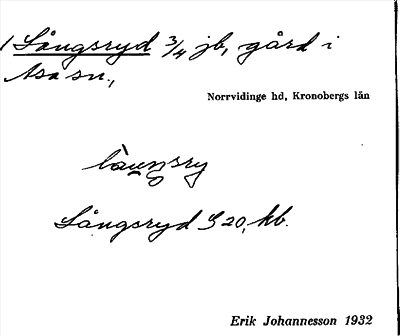 Långsryd 3/4 jb, gård i
Asa sn.,
Norrvidinge hd, Kronobergs län
Långsryd S 20, kb.
Erik Johannesson 1932